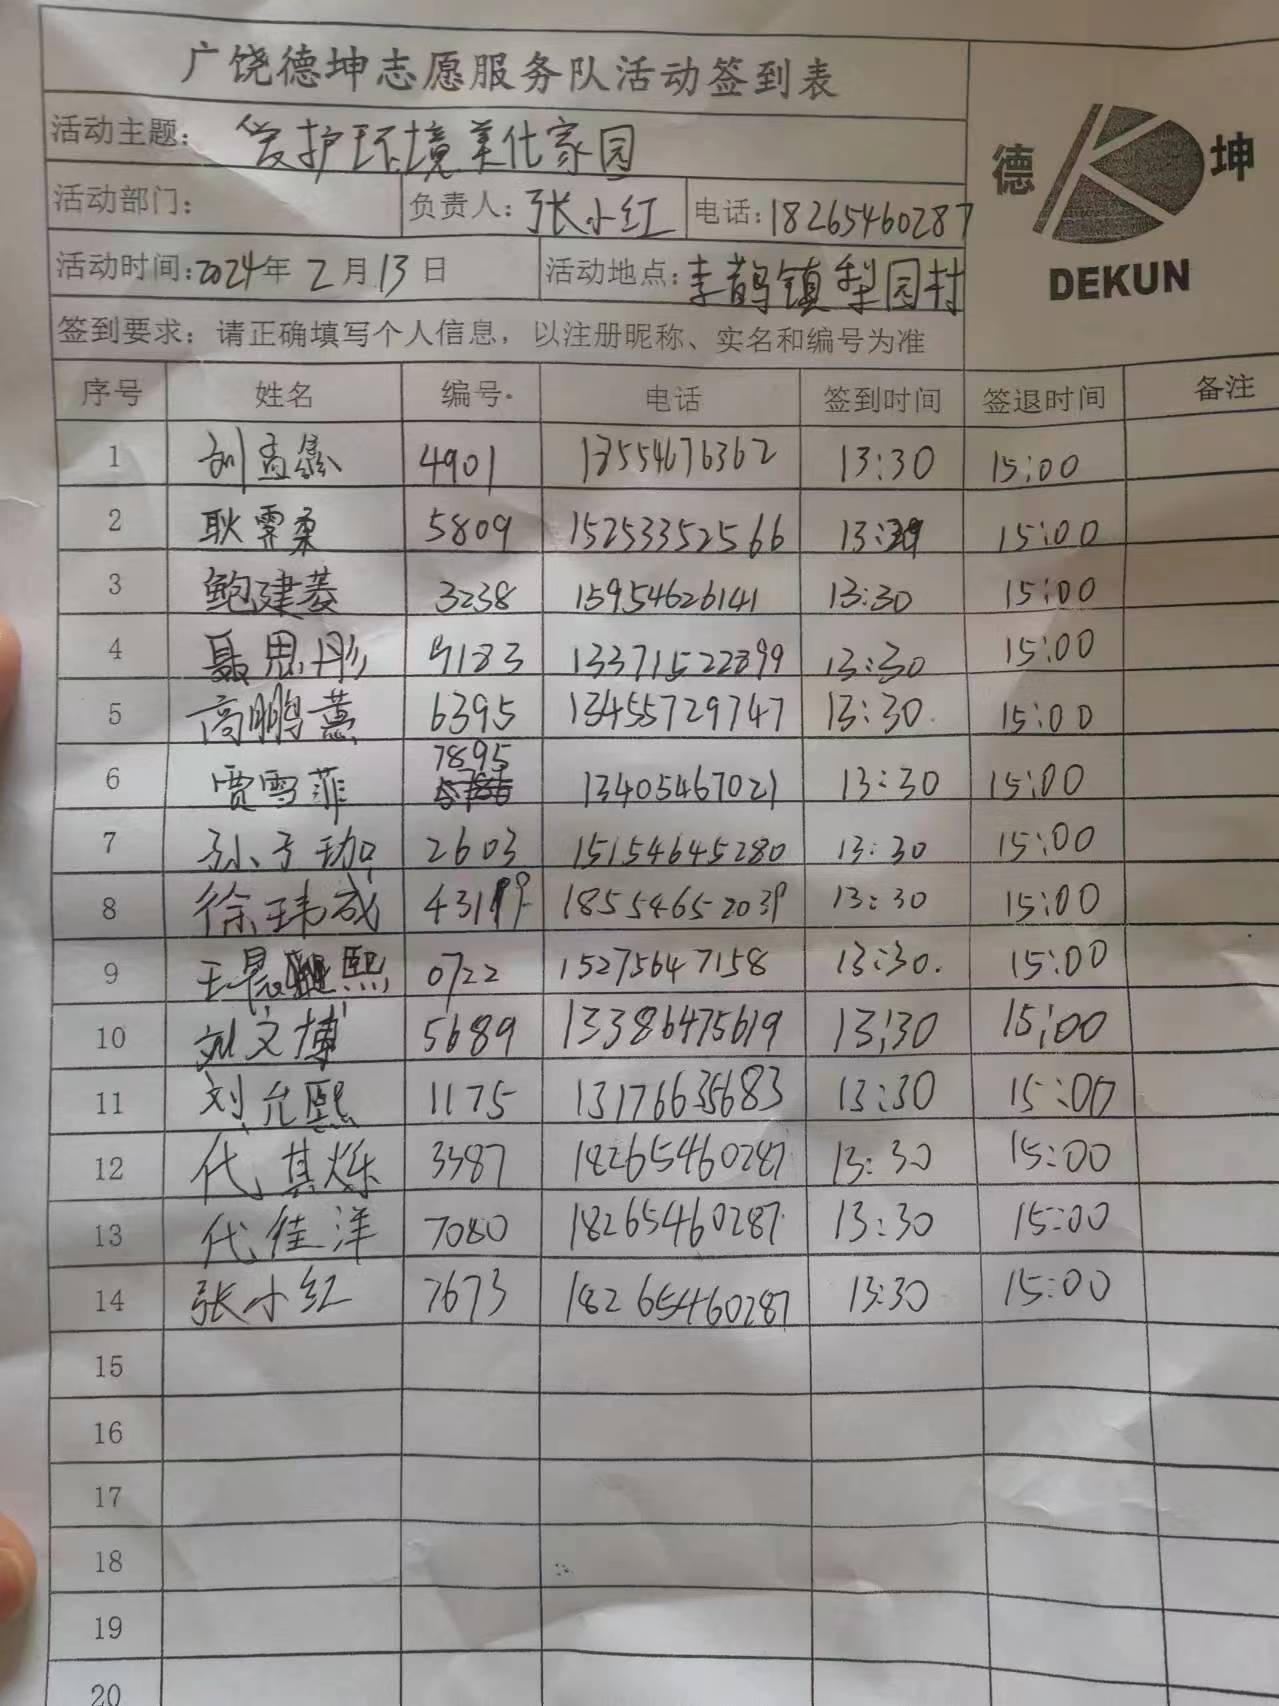 广饶德坤志愿服务队活动签到表
活动主题: 爱护环境美化家园
德 坤
DEKUN
活动部门: 负责人: 张小红 电话: 18265460287
活动时间: 2024年 2月 13日 活动地点: 李鹊镇梨园村
签到要求: 请正确填写个人信息, 以注册昵称、实名和编号为准
序号 姓名 编号. 电话 签到时间 签退时间 备注
1 刘孟鑫 4901 13554676362 13:30 15:00
2 耿霁柔 5809 152533352566 15:00
3 鲍建菱 3238 15954626141 13:30 15:00
4 聂思彤 9183 13371522899 13:30 15:00
5 高鹏薰 6395 13455729747 13:30. 15:00
6 贾雪菲 7895 13405467021 13:30 15:00
7 孙于珈 2603 15154645280 13:30 15:00
8 徐玮成 18554652039 13:30 15:00
9 王晨熙 0722 15275647158 13:30. 15:00
10 刘文博 5689 13386475619 13:30 15:00
11 刘允熙 1175 13176635683 13:30 15:00
12 代其烁 3387 18265460287 13:30 15:00
13 代佳洋 7080 18265460287 13:30 15:00
14 张小红 7673 18265460287 13:30 15:00
15
16
17
18
19
20